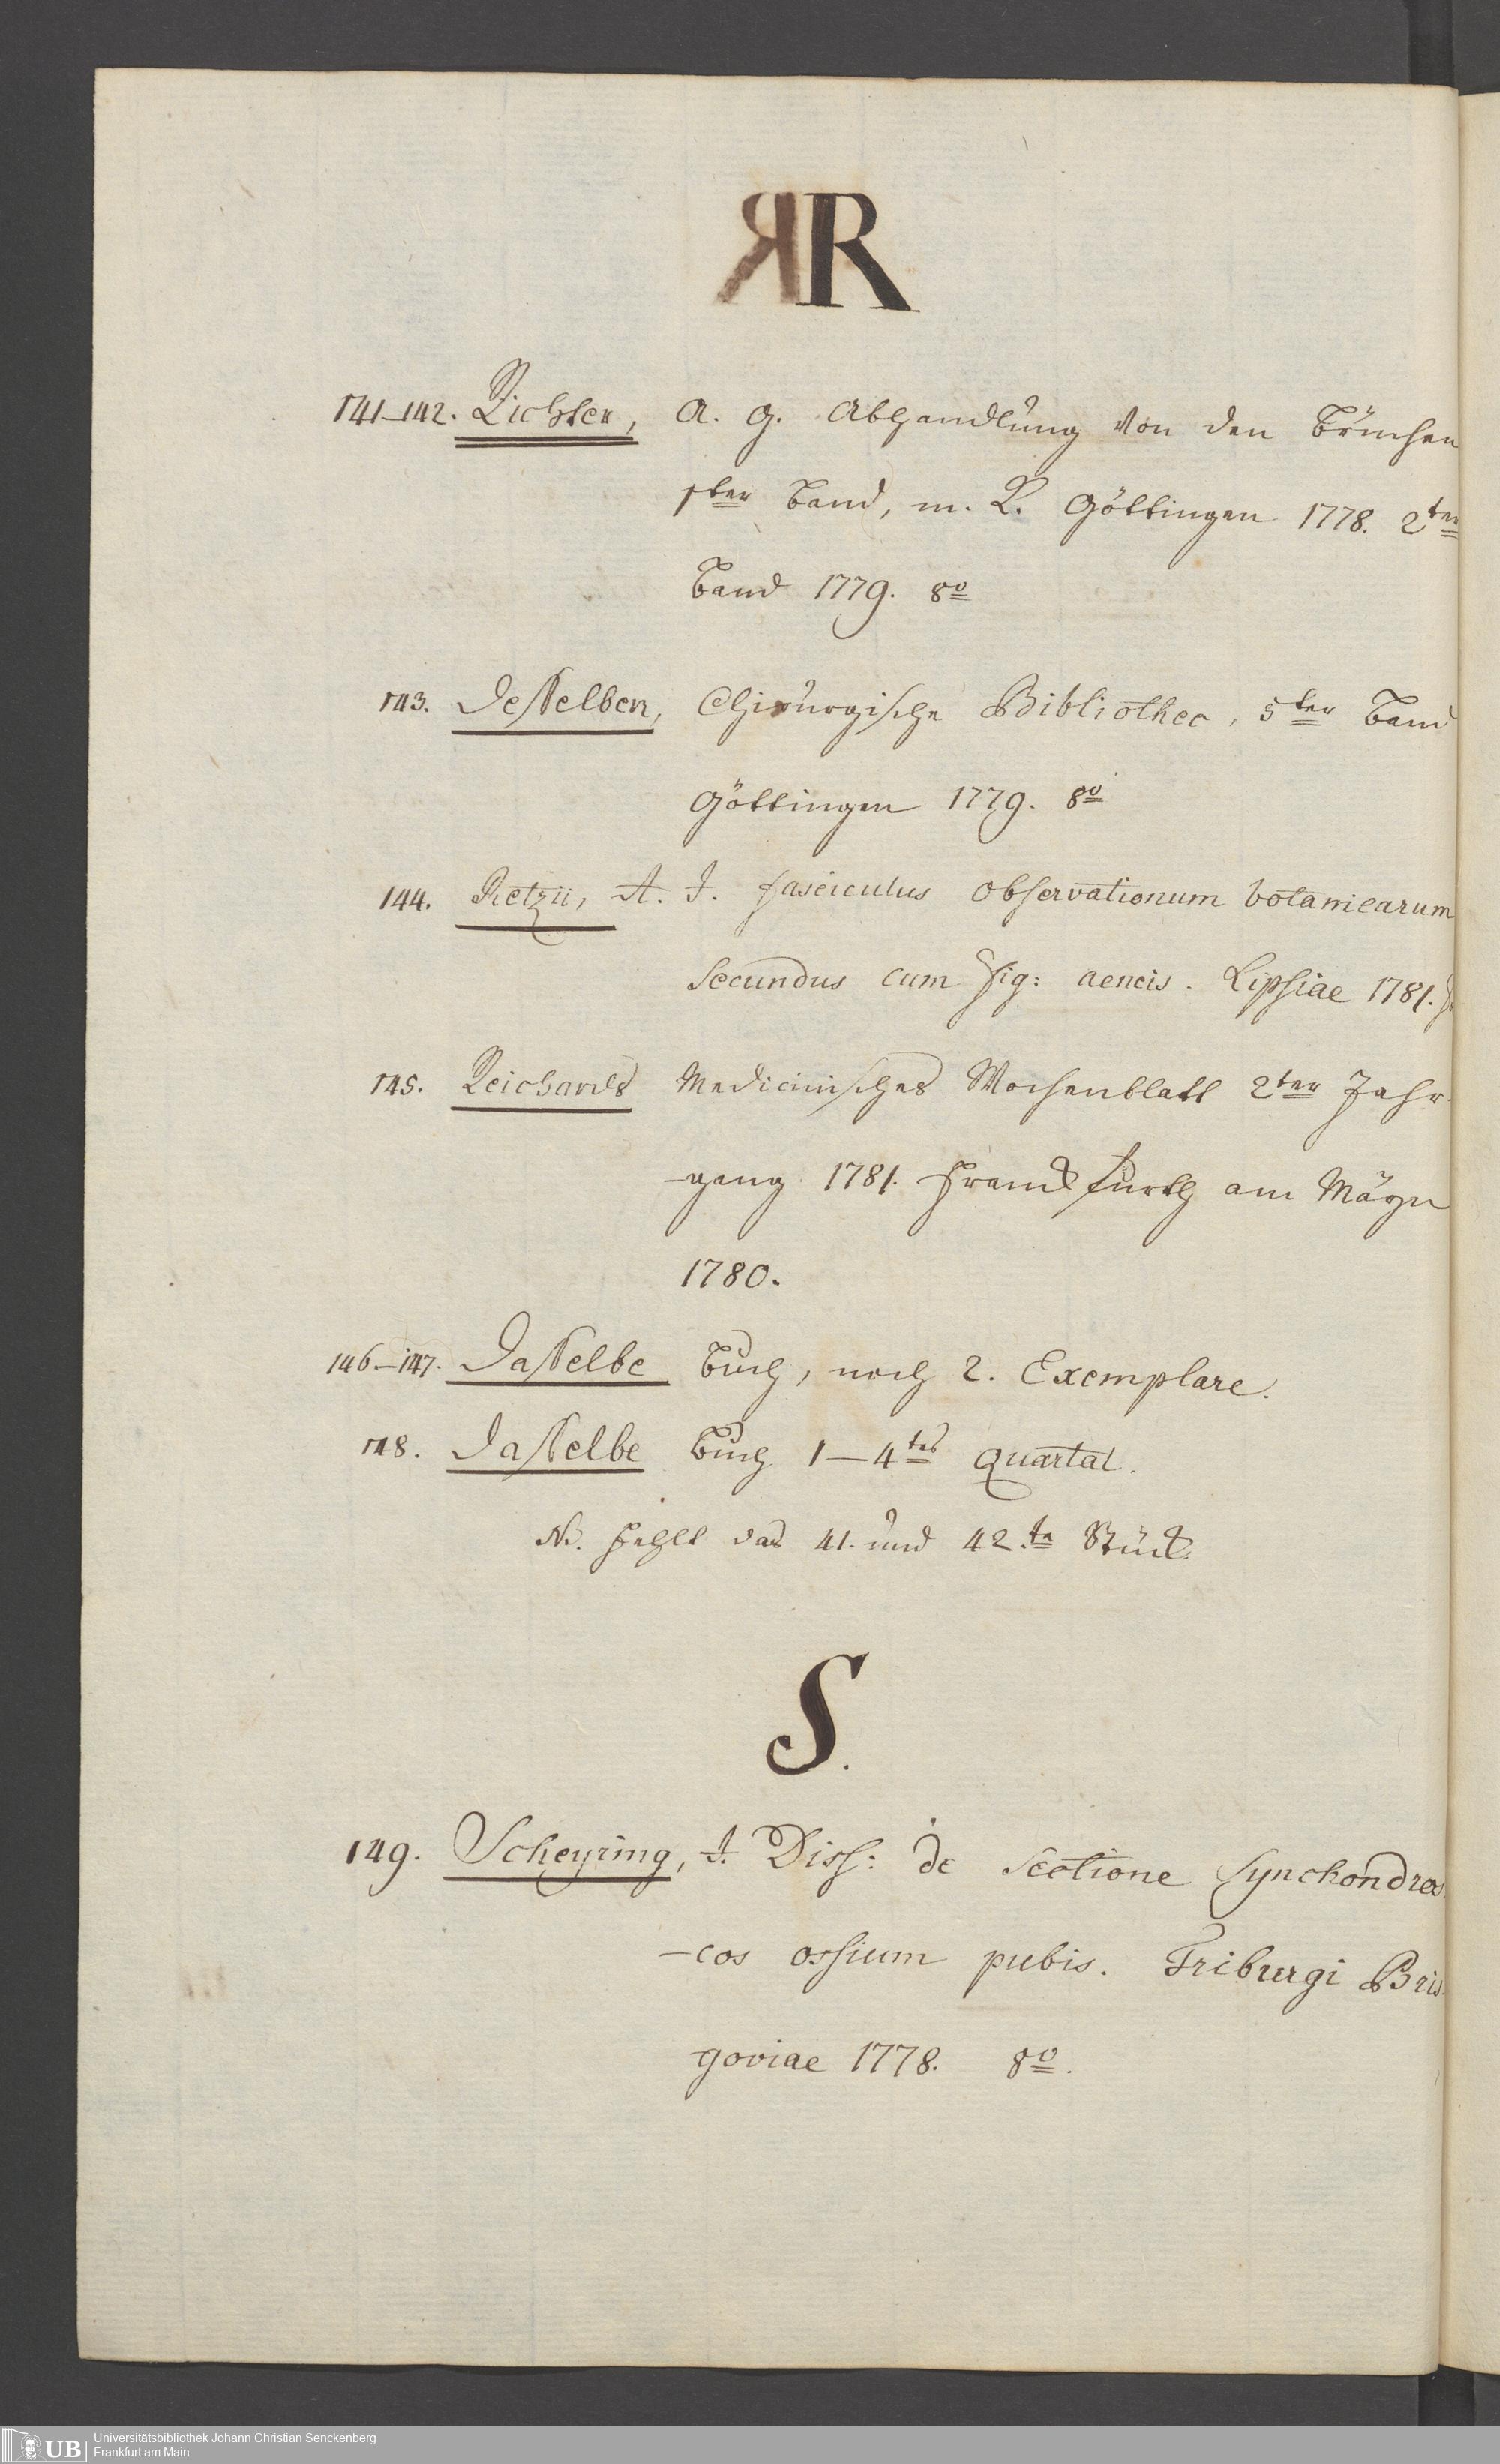 R
141–142. Richter, A. G. Abhandlung von den Brüchen
1ter Band, m. K. Göttingen 1778. 2ter
Band 1779. 8o
143. Desselben, Chirurgische Bibliothec, 5ter Band
Göttingen 1779. 8o
144. Retzii, A. J. fasciculus observationum botanicarum
secundus cum fig: aeneis. Lipsiae 1781.
145. Reichards Medicinisches Wochenblatt 2ter Jahr-
-gang 1781. Franckfurth am Mäyn
1780.
146–147. Dasselbe Buch, noch 2. Exemplare.
148. Dasselbe Buch 1–4tes Quartal.
NB. fehlt das 41. und 42.te Stück.
S.
149. Scheyring, J. Diss: de sectione synchondro
-cos ossium pubis. Friburgi Bris
goviae 1778. 8o.
UB Universitätsbibliothek Johann Christian Senckenberg
Frankfurt am Main